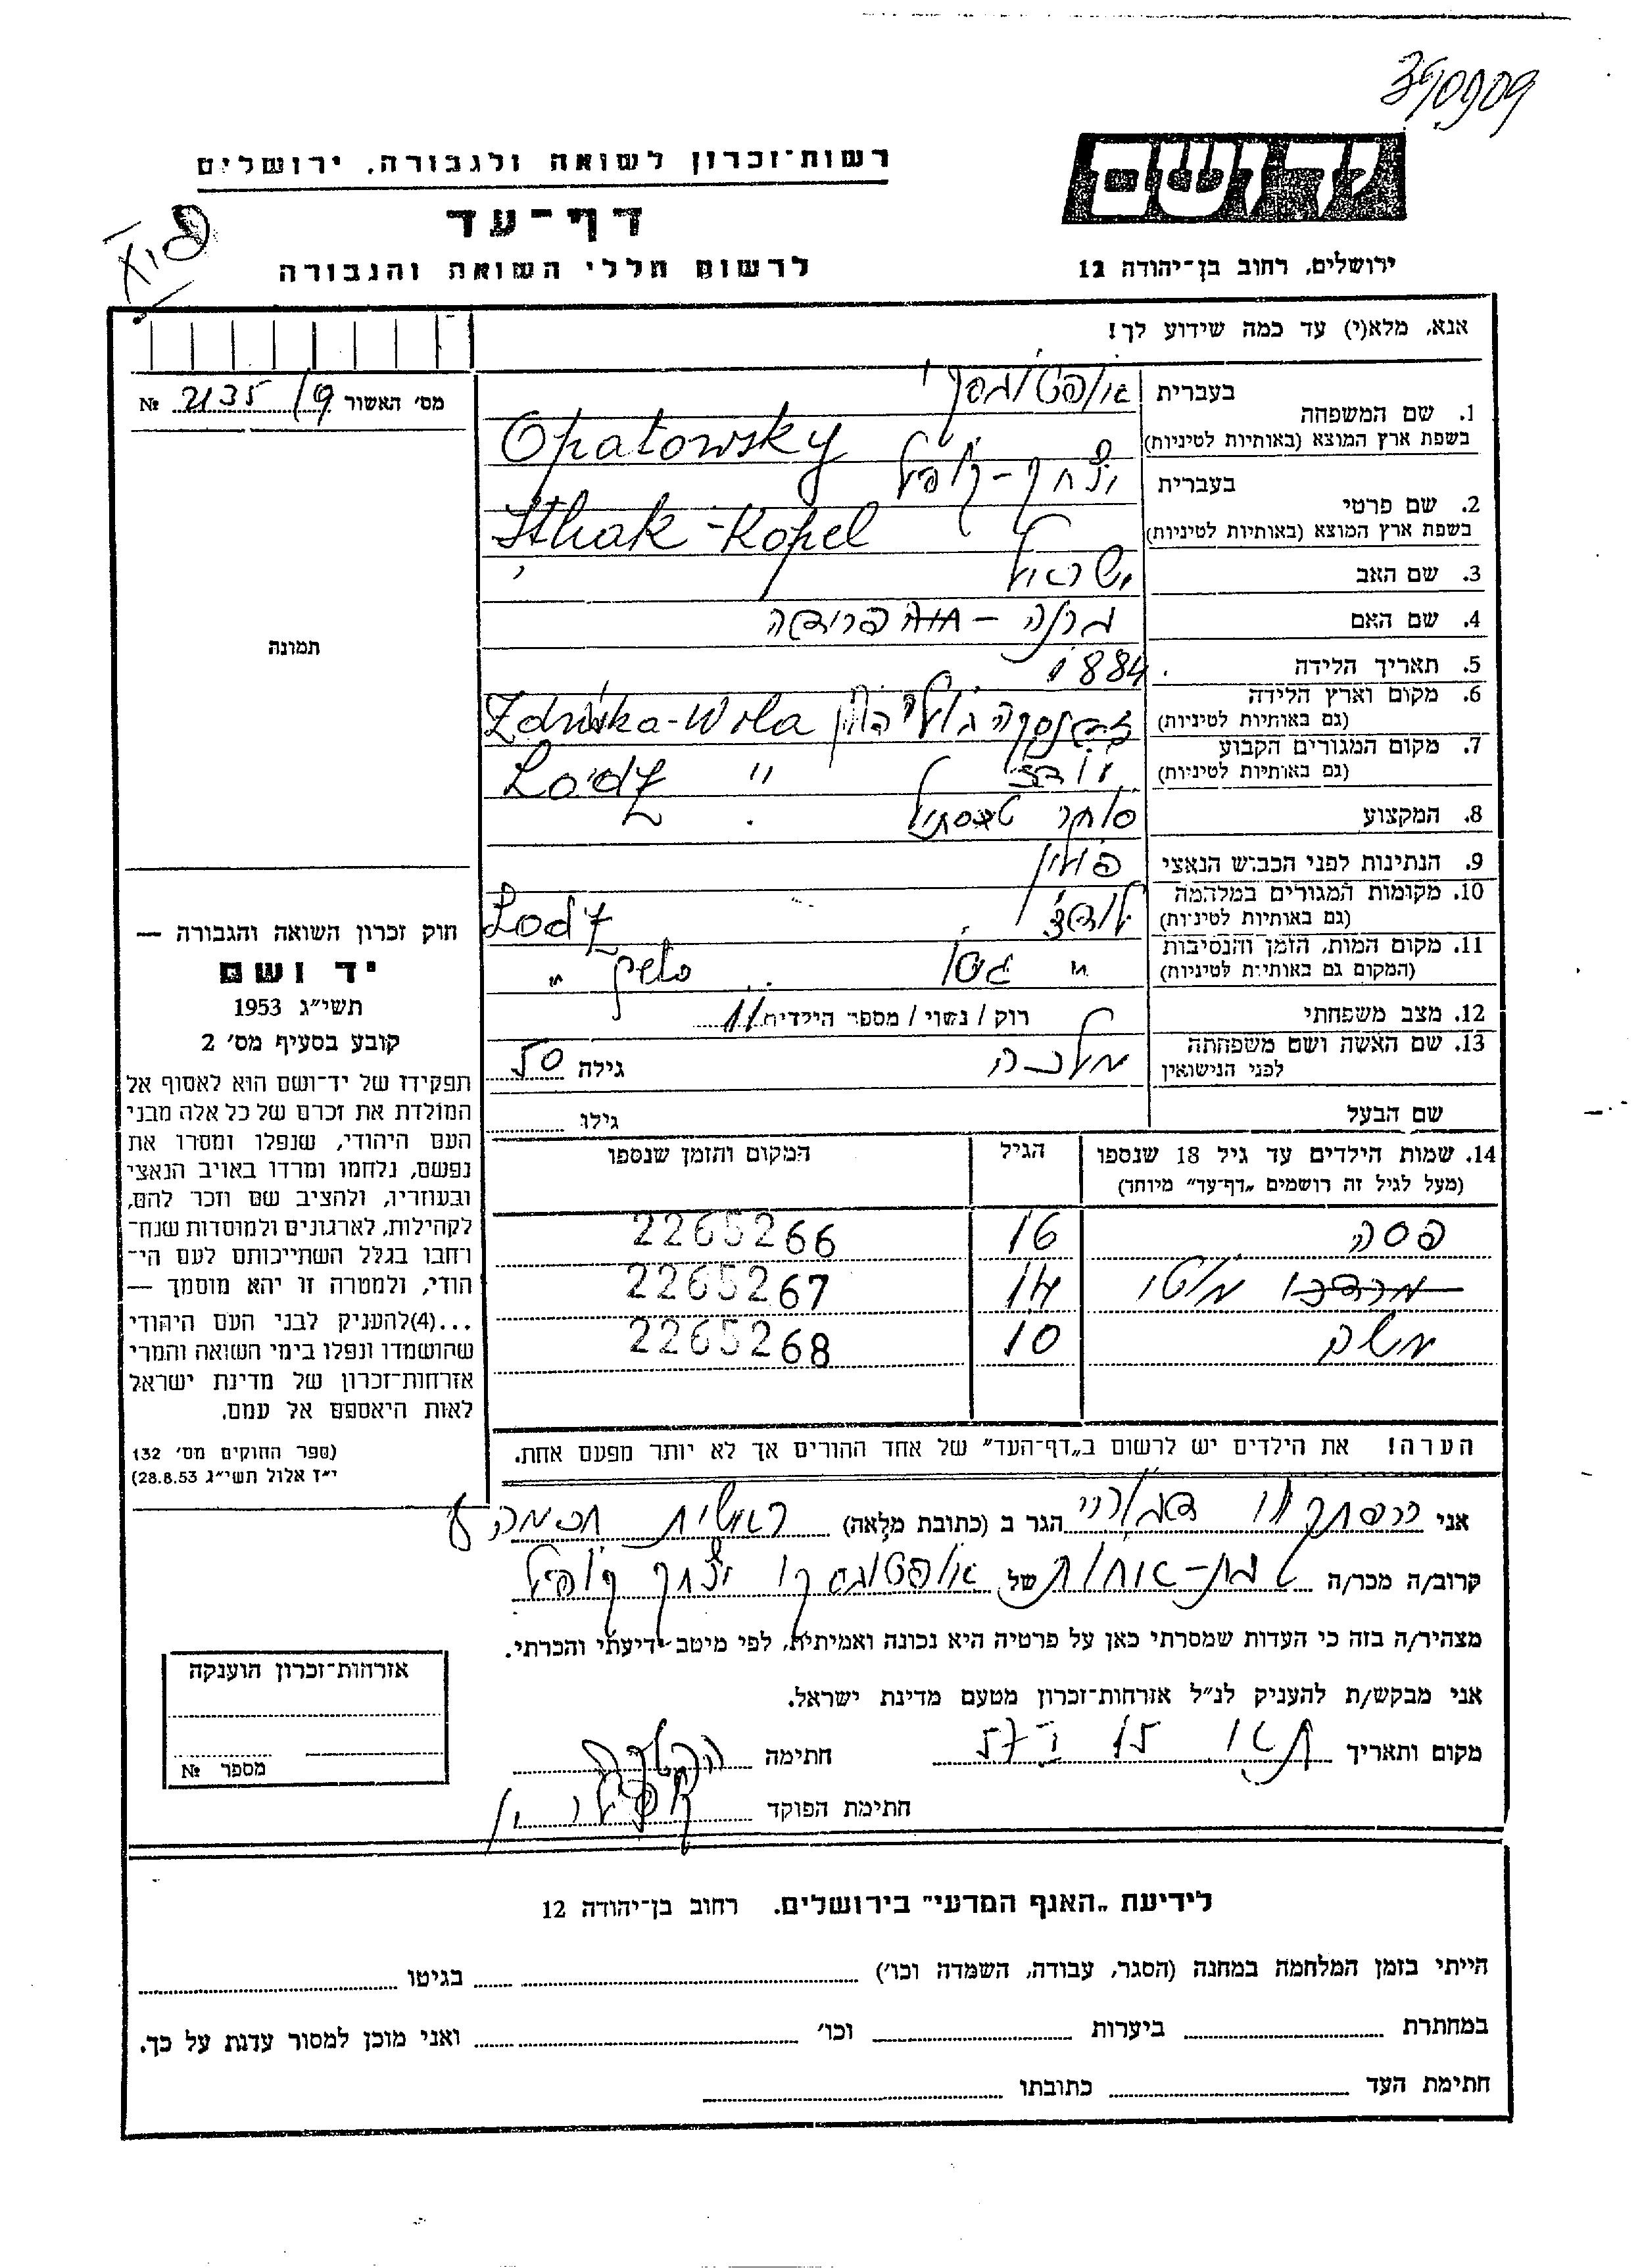 390909
רשות־זכרון לשואה ולגבורה, ירושלים
יד ושם
דף־עד
לרשום חללי השואה והגבורה
ירושלים, רחוב בן־יהודה 12
אנא, מלא(י) עד כמה שידוע לך!
מס׳ האשור 19/ 2135 №
1. שם המשפחה
בעברית
בשפת ארץ המוצא (באותיות לטיניות)
Opatowsky
2. שם פרטי
בעברית יצחק-קופל
בשפת ארץ המוצא (באותיות לטיניות)
Jthak-Kopel
3. שם האב ישראל
4. שם האם
5. תאריך הלידה 1884
6. מקום וארץ הלידה
(גם באותיות לטיניות)
Zdunska-Wola פולין
7. מקום המגורים הקבוע
(גם באותיות לטיניות)
לודז׳ " Lodz
8. המקצוע סוחר טכסטיל
9. הנתינות לפני הכבוש הנאצי פולין
10. מקומות המגורים במלחמה
(גם באותיות לטיניות)
לודז׳ Lodz
11. מקום המות, הזמן והנסיבות
(המקום גם באותיות לטיניות)
" גטו "
12. מצב משפחתי רוק / נשוי / מספר הילדים 11
13. שם האשה ושם משפחתה
לפני הנישואין
מלכה גילה 50
שם הבעל גילו
14. שמות הילדים עד גיל 18 שנספו הגיל המקום והזמן שנספו
(מעל לגיל זה רושמים „דף־עד״ מיוחד)
פסה 16 2265266
מרדכי מוטי 14 2265267
משה 10 2265268
הערה! את הילדים יש לרשום ב„דף־העד״ של אחד ההורים אך לא יותר מפעם אחת.
תמונה
חוק זכרון השואה והגבורה —
יד ושם
תשי״ג 1953
קובע בסעיף מס׳ 2
תפקידו של יד־ושם הוא לאסוף אל
המולדת את זכרם של כל אלה מבני
העם היהודי, שנפלו ומסרו את
נפשם, נלחמו ומרדו באויב הנאצי
ובעוזריו, ולהציב שם וזכר להם,
לקהילות, לארגונים ולמוסדות שנח־
רבו בגלל השתייכותם לעם הי־
הודי, ולמטרה זו יהא מוסמך —
...(4)להעניק לבני העם היהודי
שהושמדו ונפלו בימי השואה והמרי
אזרחות־זכרון של מדינת ישראל
לאות היאספם אל עמם.
(ספר החוקים מס׳ 132
י״ז אלול תשי״ג 28.8.53)
אני הגר ב (כתובת מלאה) ראשית חכמה 8
קרוב/ה מכר/ה בת-אחות של אופטובסקי יצחק קופל
מצהיר/ה בזה כי העדות שמסרתי כאן על פרטיה היא נכונה ואמיתית, לפי מיטב ידיעתי והכרתי.
אני מבקש/ת להעניק לנ״ל אזרחות־זכרון מטעם מדינת ישראל.
מקום ותאריך חתימה
חתימת הפוקד
אזרחות־זכרון הוענקה
מספר №
לידיעת „האגף המדעי״ בירושלים. רחוב בן־יהודה 12
הייתי בזמן המלחמה במחנה (הסגר, עבודה, השמדה וכו׳) בגיטו
במחתרת ביערות וכו׳ ואני מוכן למסור עדות על כך.
חתימת העד כתובתו